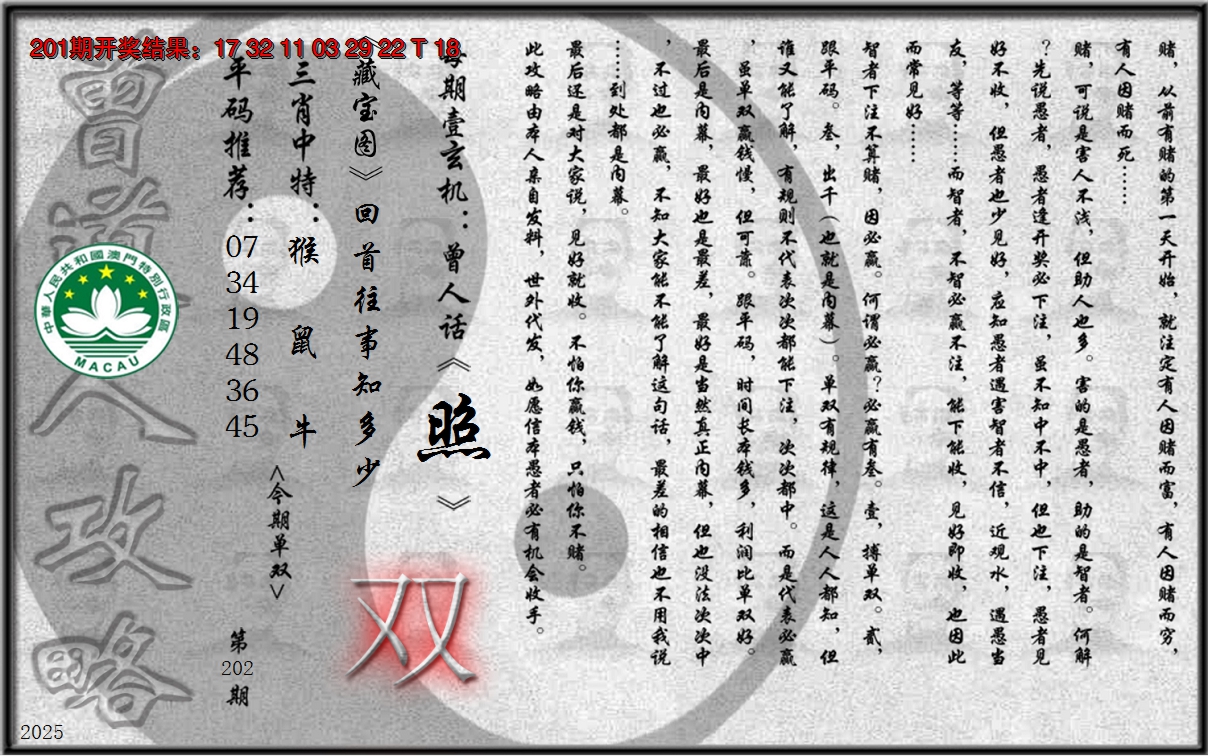 201期开奖结果：17 32 11 03 29 22 T 18
赌，从前有赌的第一天开始，就注定有人因赌而富，有人因赌而穷，
有人因赌而死……
赌，可说是害人不浅，但助人也多。害的是愚者，助的是智者。何解
？先说愚者，愚者逢开奖必下注，虽不知中不中，但也下注，愚者见
好不收，但愚者也少见好，应知愚者遇害智者不信，近观水，遇愚当
友，等等……而智者，不智必赢不注，能下能收，见好即收，也因此
而常见好……
智者下注不算赌，因必赢。何谓必赢？必赢有叁。壹，搏单双。贰，
跟平码。叁，出千（也就是内幕）。单双有规律，这是人人都知，但
谁又能了解，有规则不代表次次都能下注，次次都中。而是代表必赢
，虽单双赢钱慢，但可靠。跟平码，时间长本钱多，利润比单双好。
最后是内幕，最好也是最差，最好是当然真正内幕，但也没法次次中
，不过也必赢，不知大家能不能了解这句话，最差的相信也不用我说
……到处都是内幕。
最后还是对大家说，见好就收。不怕你赢钱，只怕你不赌。
此攻略由本人亲自发料，世外代发，如愿信本愚者必有机会收手。
每期壹玄机：曾人话《照》
《藏宝图》回首往事知多少
双
三肖中特：猴 鼠 牛
<今期单双>
平码推荐：
07
34
19
48
36
45
第
202
期
曾道人攻略
中華人民共和國澳門特別行政區
MACAU
2025